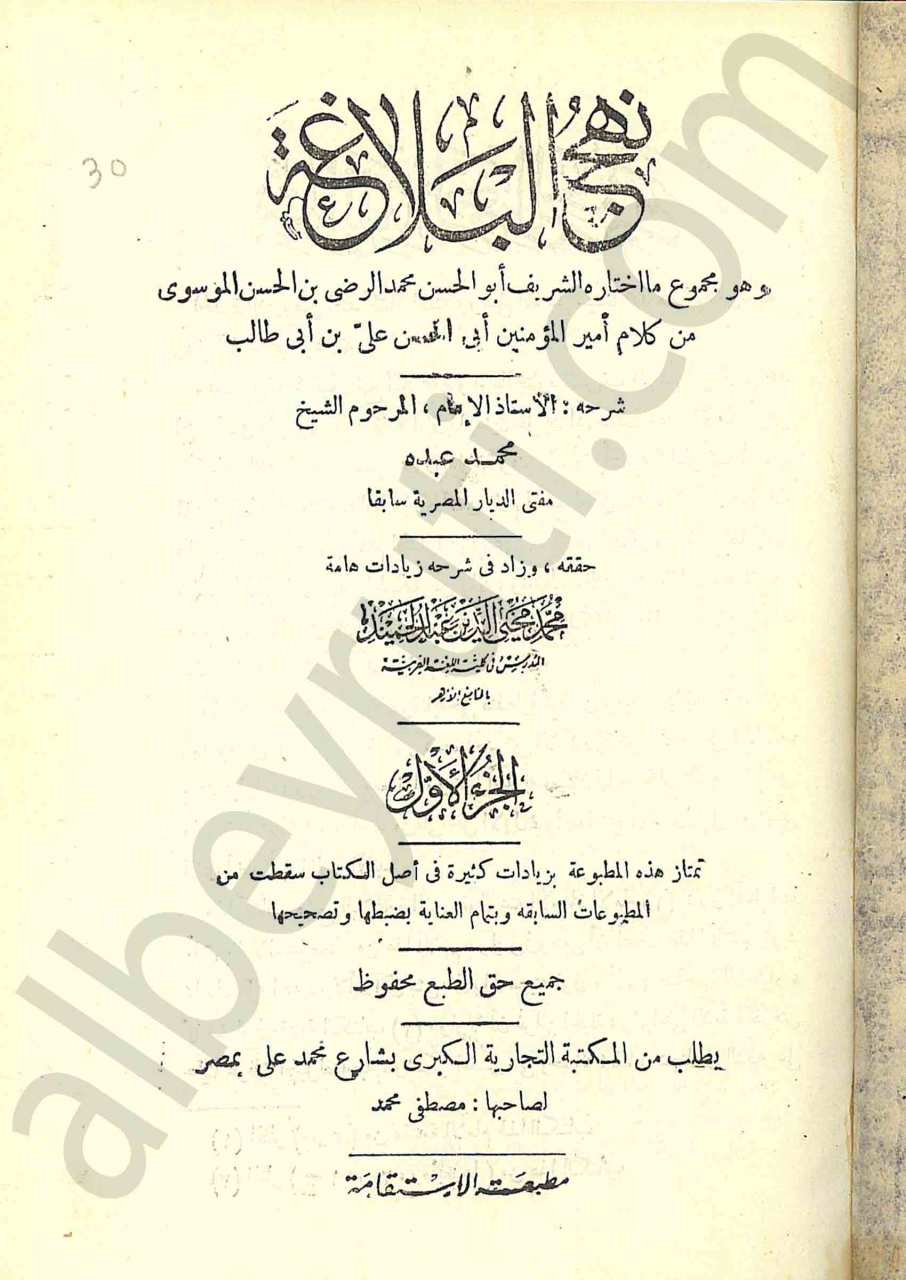 30
نهج البلاغة
وهو مجموع ما اختاره الشريف أبو الحسن محمد الرضى بن الحسن الموسوى
من كلام أمير المؤمنين أبى الحسن علىّ بن أبى طالب
شرحه : الأستاذ الإمام ، المرحوم الشيخ
محمد عبده
مفتى الديار المصرية سابقا
حققه ، وزاد فى شرحه زيادات هامة
محمد محيى الدين عبد الحميد
المدرس فى كلية اللغة العربية
بالجامع الأزهر
الجزء الأول
تمتاز هذه المطبوعة بزيادات كثيرة فى أصل الكتاب سقطت من
المطبوعات السابقه وبتمام العناية بضبطها وتصحيحها
جميع حق الطبع محفوظ
يطلب من المكتبة التجارية الكبرى بشارع محمد على بمصر
لصاحبها : مصطفى محمد
مطبعة الاستقامة
albeyruti.com